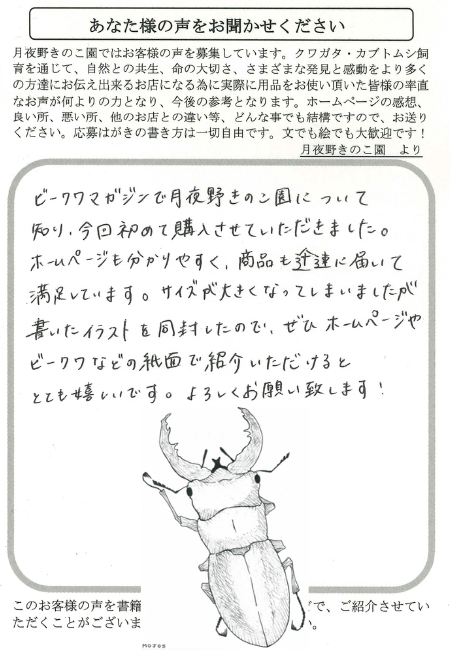 あなた様の声をお聞かせください
月夜野きのこ園ではお客様の声を募集しています。クワガタ・カブトムシ飼
育を通じて、自然との共生、命の大切さ、さまざまな発見と感動をより多く
の方達にお伝え出来るお店になる為に実際に用品をお使い頂いた皆様の率直
なお声が何よりの力となり、今後の参考となります。ホームページの感想、
良い所、悪い所、他のお店との違い等、どんな事でも結構ですので、お送り
ください。応募はがきの書き方は一切自由です。文でも絵でも大歓迎です！
月夜野きのこ園 より
ビークワマガジンで月夜野きのこ園について
知り、今回初めて購入させていただきました。
ホームページも分かりやすく、商品も迅速に届いて
満足しています。サイズが大きくなってしまいましたが
書いたイラストを同封したので、ぜひホームページや
ビークワなどの紙面で紹介いただけると
とても嬉しいです。よろしくお願い致します！
このお客様の声を書籍 で、ご紹介させてい
ただくことがございま い。